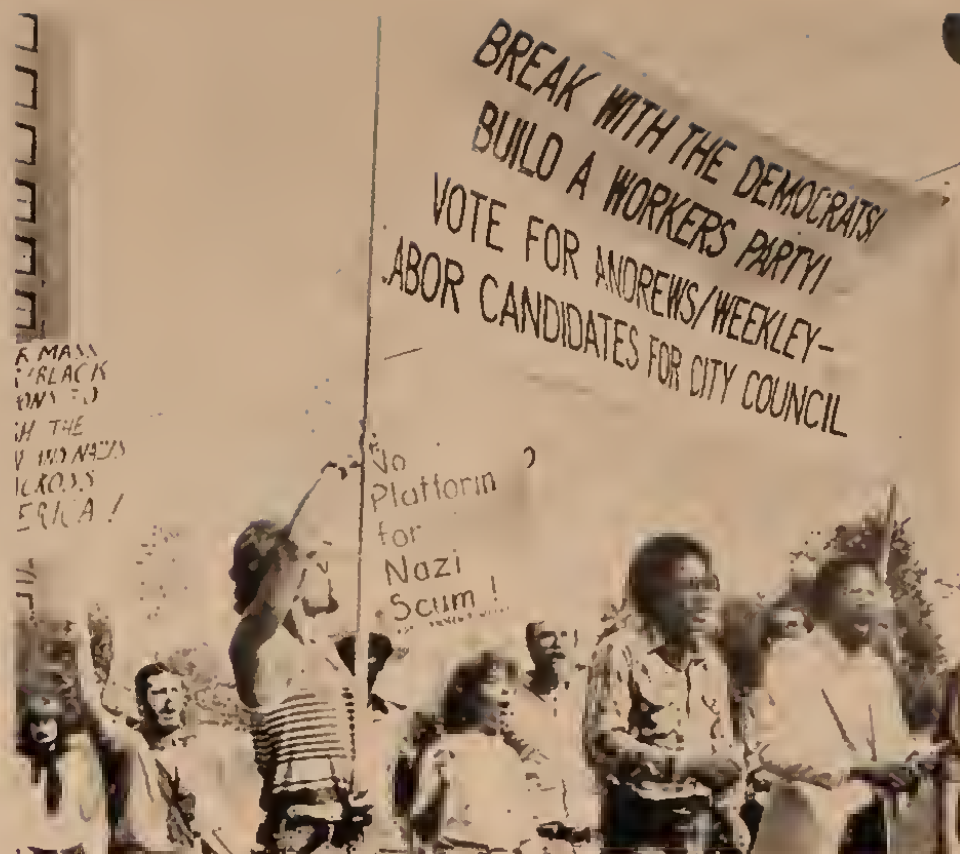 BREAK WITH THE DEMOCRATS!
BUILD A WORKERS PARTY!
VOTE FOR ANDREWS/WEEKLEY-
ABOR CANDIDATES FOR CITY COUNCIL
MASS
BLACK
THE
No
Platform
for
Nazi
Scum!